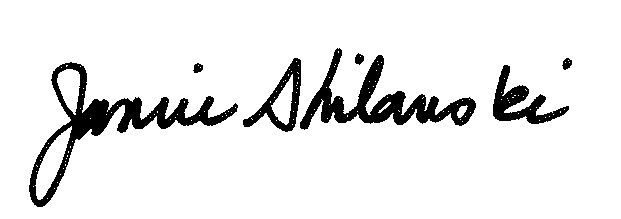 Jamie Shilanski